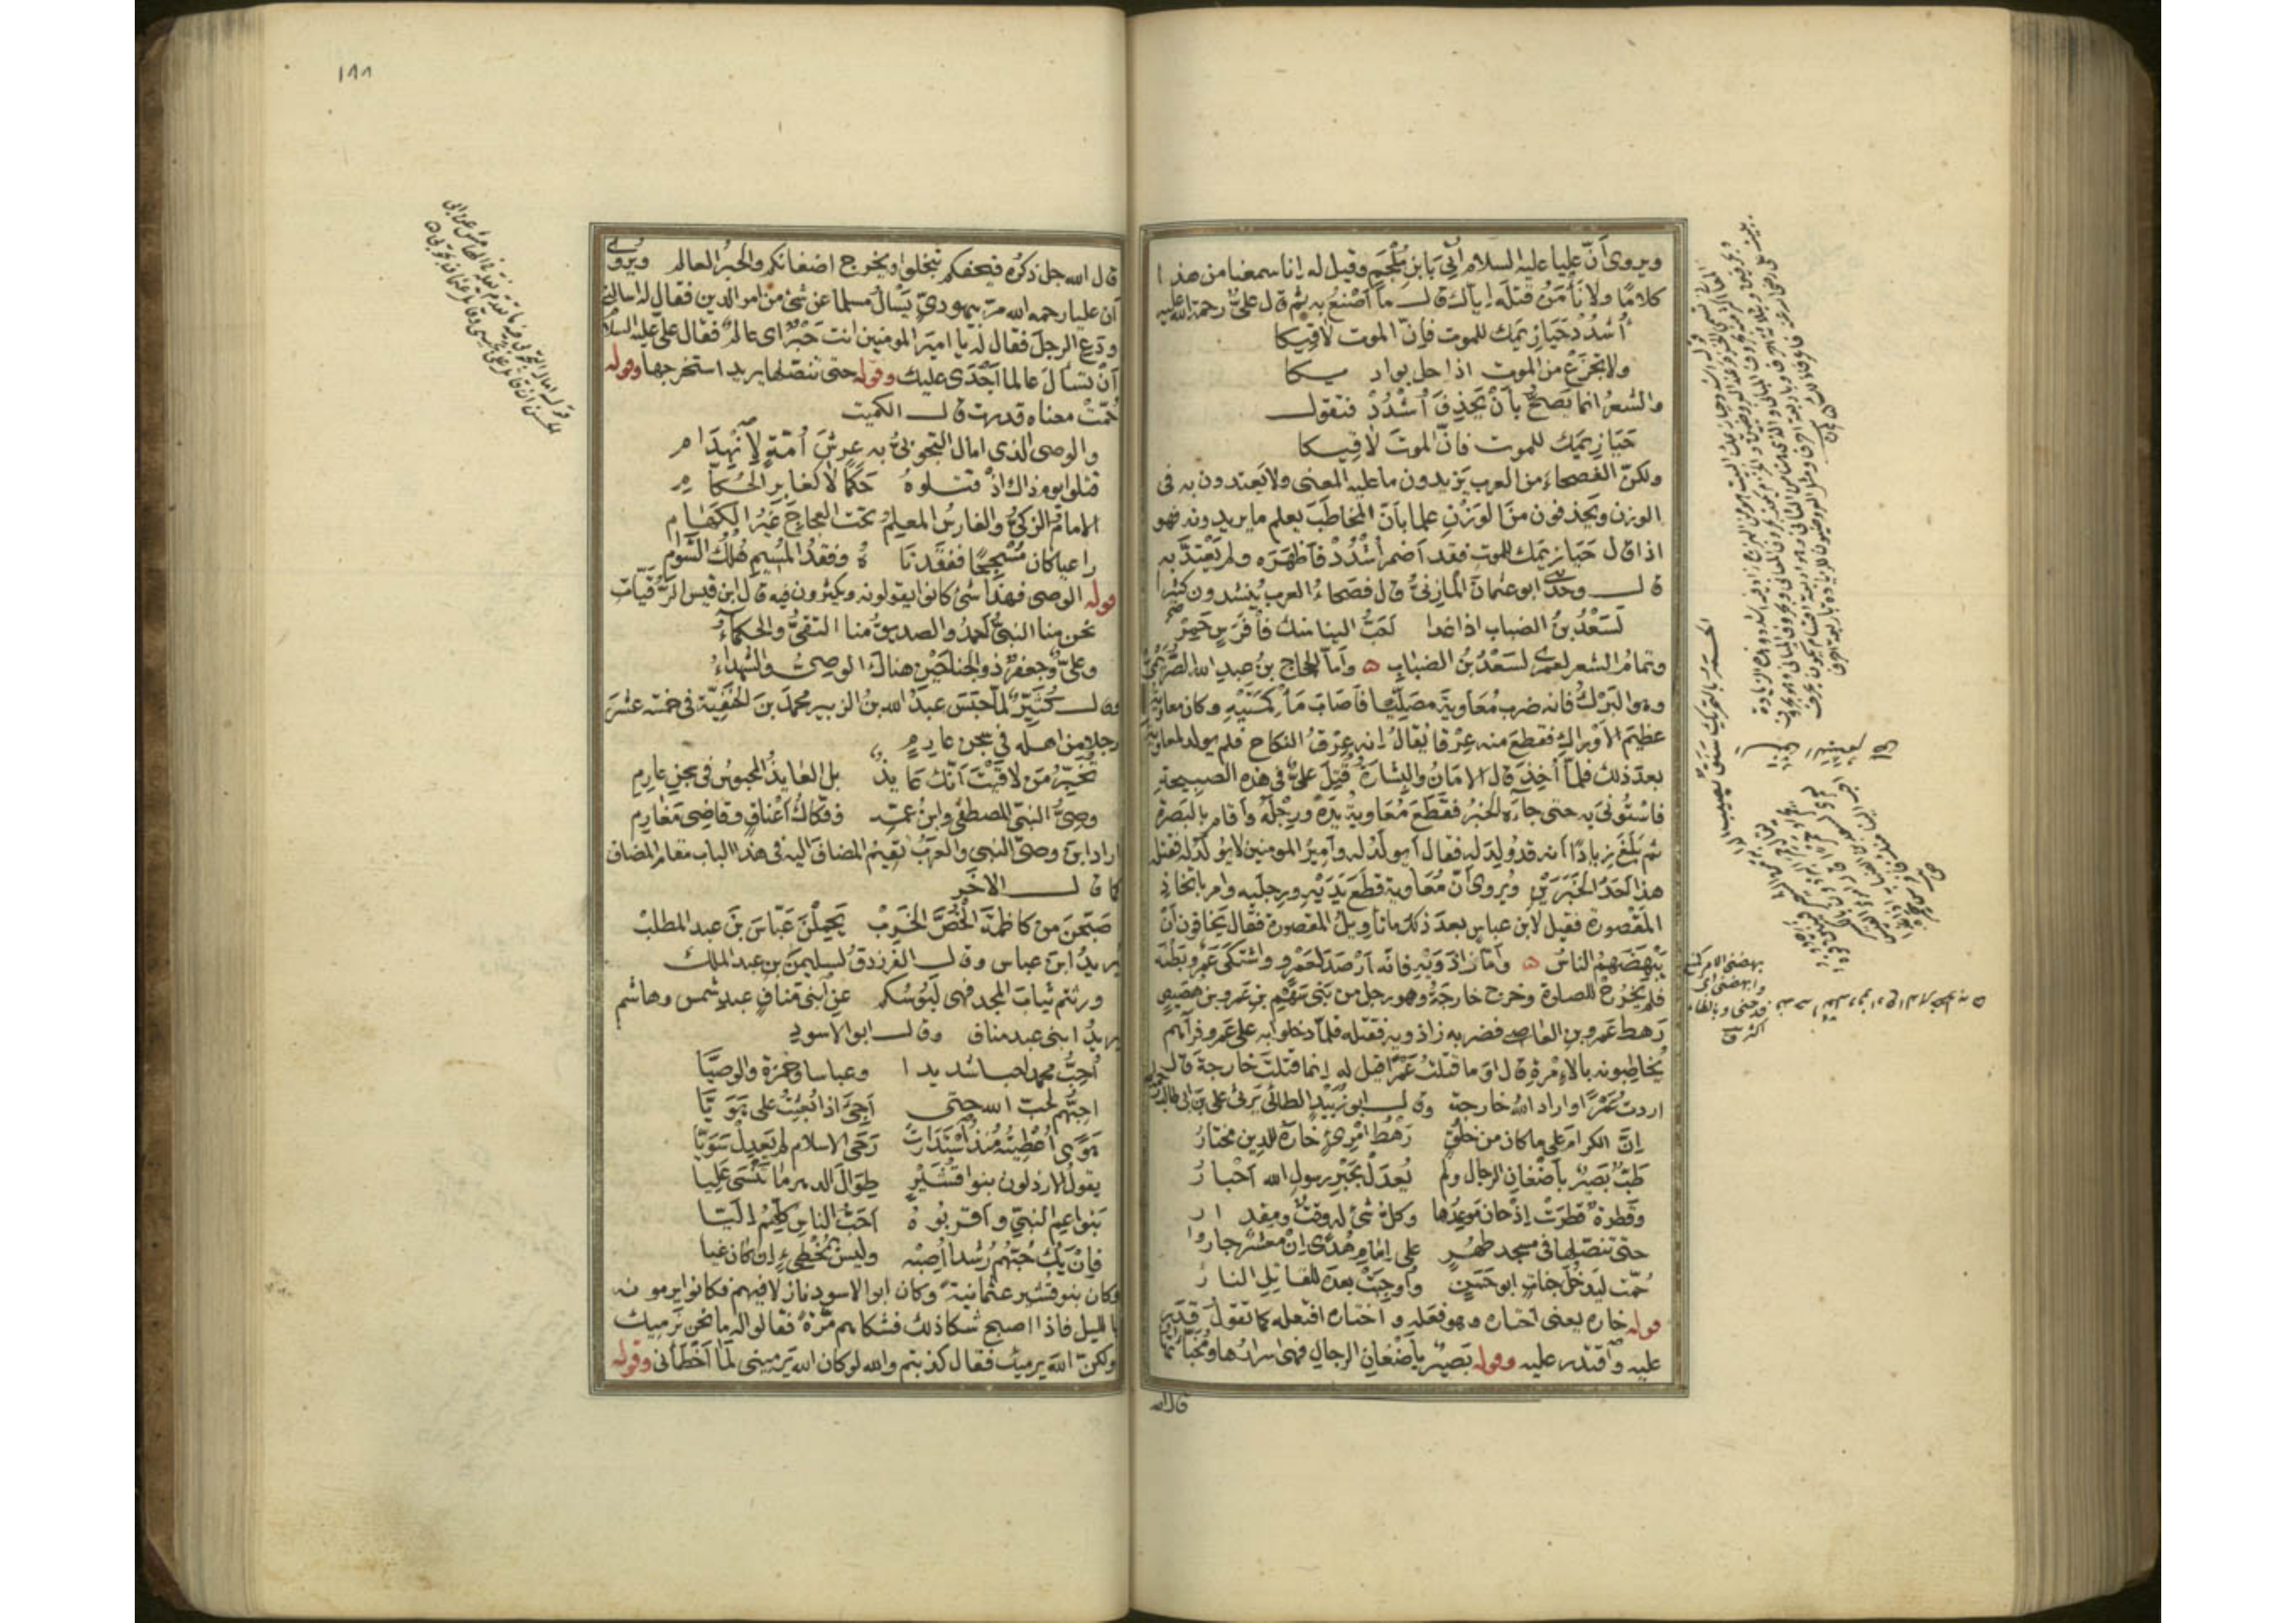 ويروى أنّ عليا عليه السلام أُتِيَ بابنِ مُلْجَمٍ وقيل له إنا سمعنا من هذا
كلامًا ولا نَأمَنُ قتلَه إياك قال ما أصْنَعُ به ثم قال عليٌّ رحمة الله عليه
أُشْدُدْ حَيَازِيمَك للموت فإنّ الموت لاقِيكا
ولا تجزَعْ من الموت اذا حل بواديكا
والشعرُ انما يَصحُّ بأنْ تحذِفَ أُشْدُدْ فتقول
حَيَازِيمَك للموت فانّ الموتَ لاقِيكا
ولكنّ الفصحاءَ من العرب يَزيدون ما عليه المعنى ولا يَعتدون به في
الوزن ويَحذفون منَ الوَزْنِ علما بانّ المخاطَبَ يعلم ما يريدونه فهو
اذا قال حَيَازيمَك للموت فقد اَضمر اُشْدُدْ فأظهَرَه ولم يَعْتَدَّ به
قال وحدثنى ابو عثمانَ المازِنيُّ قال فصحاءُ العرب يُنشدون كثيرا
لَسَعْدُ بنُ الضباب اذا غدا لَحبُّ الينا منك فأفَرَسٍ حَمِرْ
وتمامُ الشعر لعمرى لسَعْدُ بنُ الضبابِ ه وأما الحجاج بنُ عبدِ الله الصَّرِيمىُّ
وهو البُرَكُ فانه ضرب مُعَاويةَ مصلِّيا فأصابَ مَأْكَمَتَيْهِ وكان معاوية
عظيمَ الأوراكِ فقطع منه عِرْقا يُقالُ انه عِرْقُ النكاح فلم يولد لمعاوية
بعد ذلك فلمّا اُخِذَ قال الامانَ والبشارةَ قُتِلَ عليٌّ في هذه الصبيحةِ
فاسْتُوْنِىَ به حتى جاءَه الخبرُ فقَطَعَ مُعَاويةُ يدَهُ ورِجْلَه وأقام بالبصرة
ثم بَلَغَ زيادًا أنه قد وُلِدَ له فقال أيولَدُ له وأميرُ المومنين لا يُولَد له فقتله
هذا اَحَدُ الخبَرَيْنِ ويُروى أنّ مُعَاوية قطَعَ يَدَيْهِ ورجليه وامر باتخاذِ
المَقْصورة فقيل لابن عباس بعدَ ذلك ما تأويلُ المقصورة فقال يخافون اَنْ
يَبْهَضَهُمُ الناسُ ه وأمّا زاذَوَيْهِ فانّه اَرْصَدَ لعَمْرو واشتكى عمرو بَطنَه
فلم يَخْرُجْ للصلوة وخرج خارجةُ وهو رجل من بَني سَهْمِ بنِ عَمرو بن هُصَيصٍ
رهط عَمرِو بنِ العاصِ فضربه زاذويه فقتله فلمّا دخلوا به على عمرو فرآهم
يُخاطبونه بالاِمْرةِ قال اوَ ما قتلتُ عَمْرًا قيل له إنما قتلتَ خارجةَ قال
اردتُ عَمْرًا واراد اللهُ خارجة وقال ابو زُبَيْدٍ الطائى يَرثى علىَّ بن ابى طالب
إنَّ الكرامَ على ما كان من خُلُقٍ رَهْطُ امْرِئٍ خارَهُ للدين مختارُ
طَبٌّ بَصيرٌ بأضْغانِ الرجال ولم يُعدَلْ بحَبْرِ رسولِ الله اَحْبارُ
وقَطرةٌ قطرَتْ اِذْ حان مَوعِدُها وكلُّ شئ له وقتٌ ومِقدارُ
حتى تنصّلها في مسجدٍ طُهُرٍ على إمامِ هُدًى إنْ معشرٌ جاروا
حُمّت ليَدخُلَ جناتٍ ابو حَسَنٍ وأُوجِبَتْ بعدَه للقاتِلِ النارُ
قوله خاره يعنى اختاره وهو فعَله واختاره افتعله كما تقول قدَر
عليه واقتدر عليه وقوله بَصيرٌ بأضغانِ الرجالِ فهى اسرارُها ومُخَبَّآتُها
قال الله
١٨٨
قال الله جل ذكرُه فيُحفكم تبخلوا ويُخرج اضغانكم والحَبْرُ العالم ويُروى
أن عليا رحمه الله مرّ بيهوديٍّ يَسْألُ مسلما عن شئ من امر الدين فقال له اسالنى
ودَع الرجلَ فقال له يا اميرَ المومنين انت حَبْرٌ اى عالمٌ فقال علىٌّ عليه السلام
أنْ تسألَ عالما اَجْدَى عليك وقوله حتى تنصّلها يريد استخرجها وقوله
حُمّتْ معناه قدرت قال الكميت
والوصى الذى امال التجوبىُّ به عرشَ اُمّةٍ لانْهِدامِ
قتلوا يوم ذاك اذْ قتلوهُ حَكَمًا لا كغابرِ الحكّامِ
الامامُ الزكىُّ والفارسُ المعلِمُ تحت العجاجِ غيرُ الكَهَامِ
راعيا كان مُسْجِحًا ففقدناهُ وفقدُ المُسيمِ هُلْكُ السَّوَامِ
قوله الوصى فهذا شئ كانوا يقولونه ويكثرون فيه قال ابن قيس الرُّقَيّات
نحن منا النبىُّ احمدُ والصديقُ منا التقىُّ والحكماءُ
وعلىٌّ وجعفرٌ ذو الجناحَيْنِ هناك الوصىُّ والشهداءُ
وقال كُثَيّرٌ لمّا حَبَسَ عبدُ الله بنُ الزبير محمدَ بنَ الحَنَفيّة في خمسةَ عشَرَ
رجلا من اهله في سجن عارِمٍ
تُخَبِّرُ مَن لاقيْتَ اَنّك عايذٌ بل العايذُ المحبوسُ في سجنِ عارِمِ
وصىُّ النبىِّ المصطفى وابنُ عمّه وفكّاكُ اَعْناقٍ وقاضى مَغَارِمِ
اراد ابنَ وصىِّ النبى والعرَبُ تُقيمُ المضافَ اليه في هذا الباب مقام المضاف
كما قال الآخَرُ
صَبّحنَ من كاظمةَ الخُصَّ الخَرِبْ يَحْمِلْنَ عَبّاسَ بنَ عبد المطلبْ
يريدُ ابنَ عباس وقال الفرزدقُ لسليمنَ بنِ عبد الملك
ورثتم ثيابَ المجد فهى لَبُوسُكم عنِ ابنَىْ مَنافٍ عبدِ شمس وهاشم
يريدُ ابنى عبد مناف وقال ابو الاسودِ
اُحِبُّ محمدا حبا شديدا وعباسا وحمزة والوصيّا
احبُّهم لحبّ الله حتى اَجئَ اذا بُعِثْتُ على هَوَيّا
هَوًى اُعْطِيتُه منذُ اسْتَدارَتْ رَحَى الاسلام لم يَعدِلْ سَوِيّا
يقولُ الارذلون بنو قُشَيْرٍ طِوالَ الدهرِ ما تَنْسَى عَليا
بَنو عمِ النبىِّ واَقربوهُ اَحبُّ الناسِ كلِّهمُ إليّا
فإنْ يَكُ حُبّهُم رُشدا أُصِبْه وليسَ بمُخْطِئٍ إن كان غيا
وكان بنو قشير عثمانيةً وكان ابو الاسود نازلا فيهم فكانوا يرمونه
بالليل فاذا اصبح شكا ذلك فشكاهم مَرّةً فقالوا له ما نحن نَرْميك
ولكنّ اللهَ يرميك فقال كذبتم والله لو كان الله يَرمينى لَمَا اَخطأنى وقوله